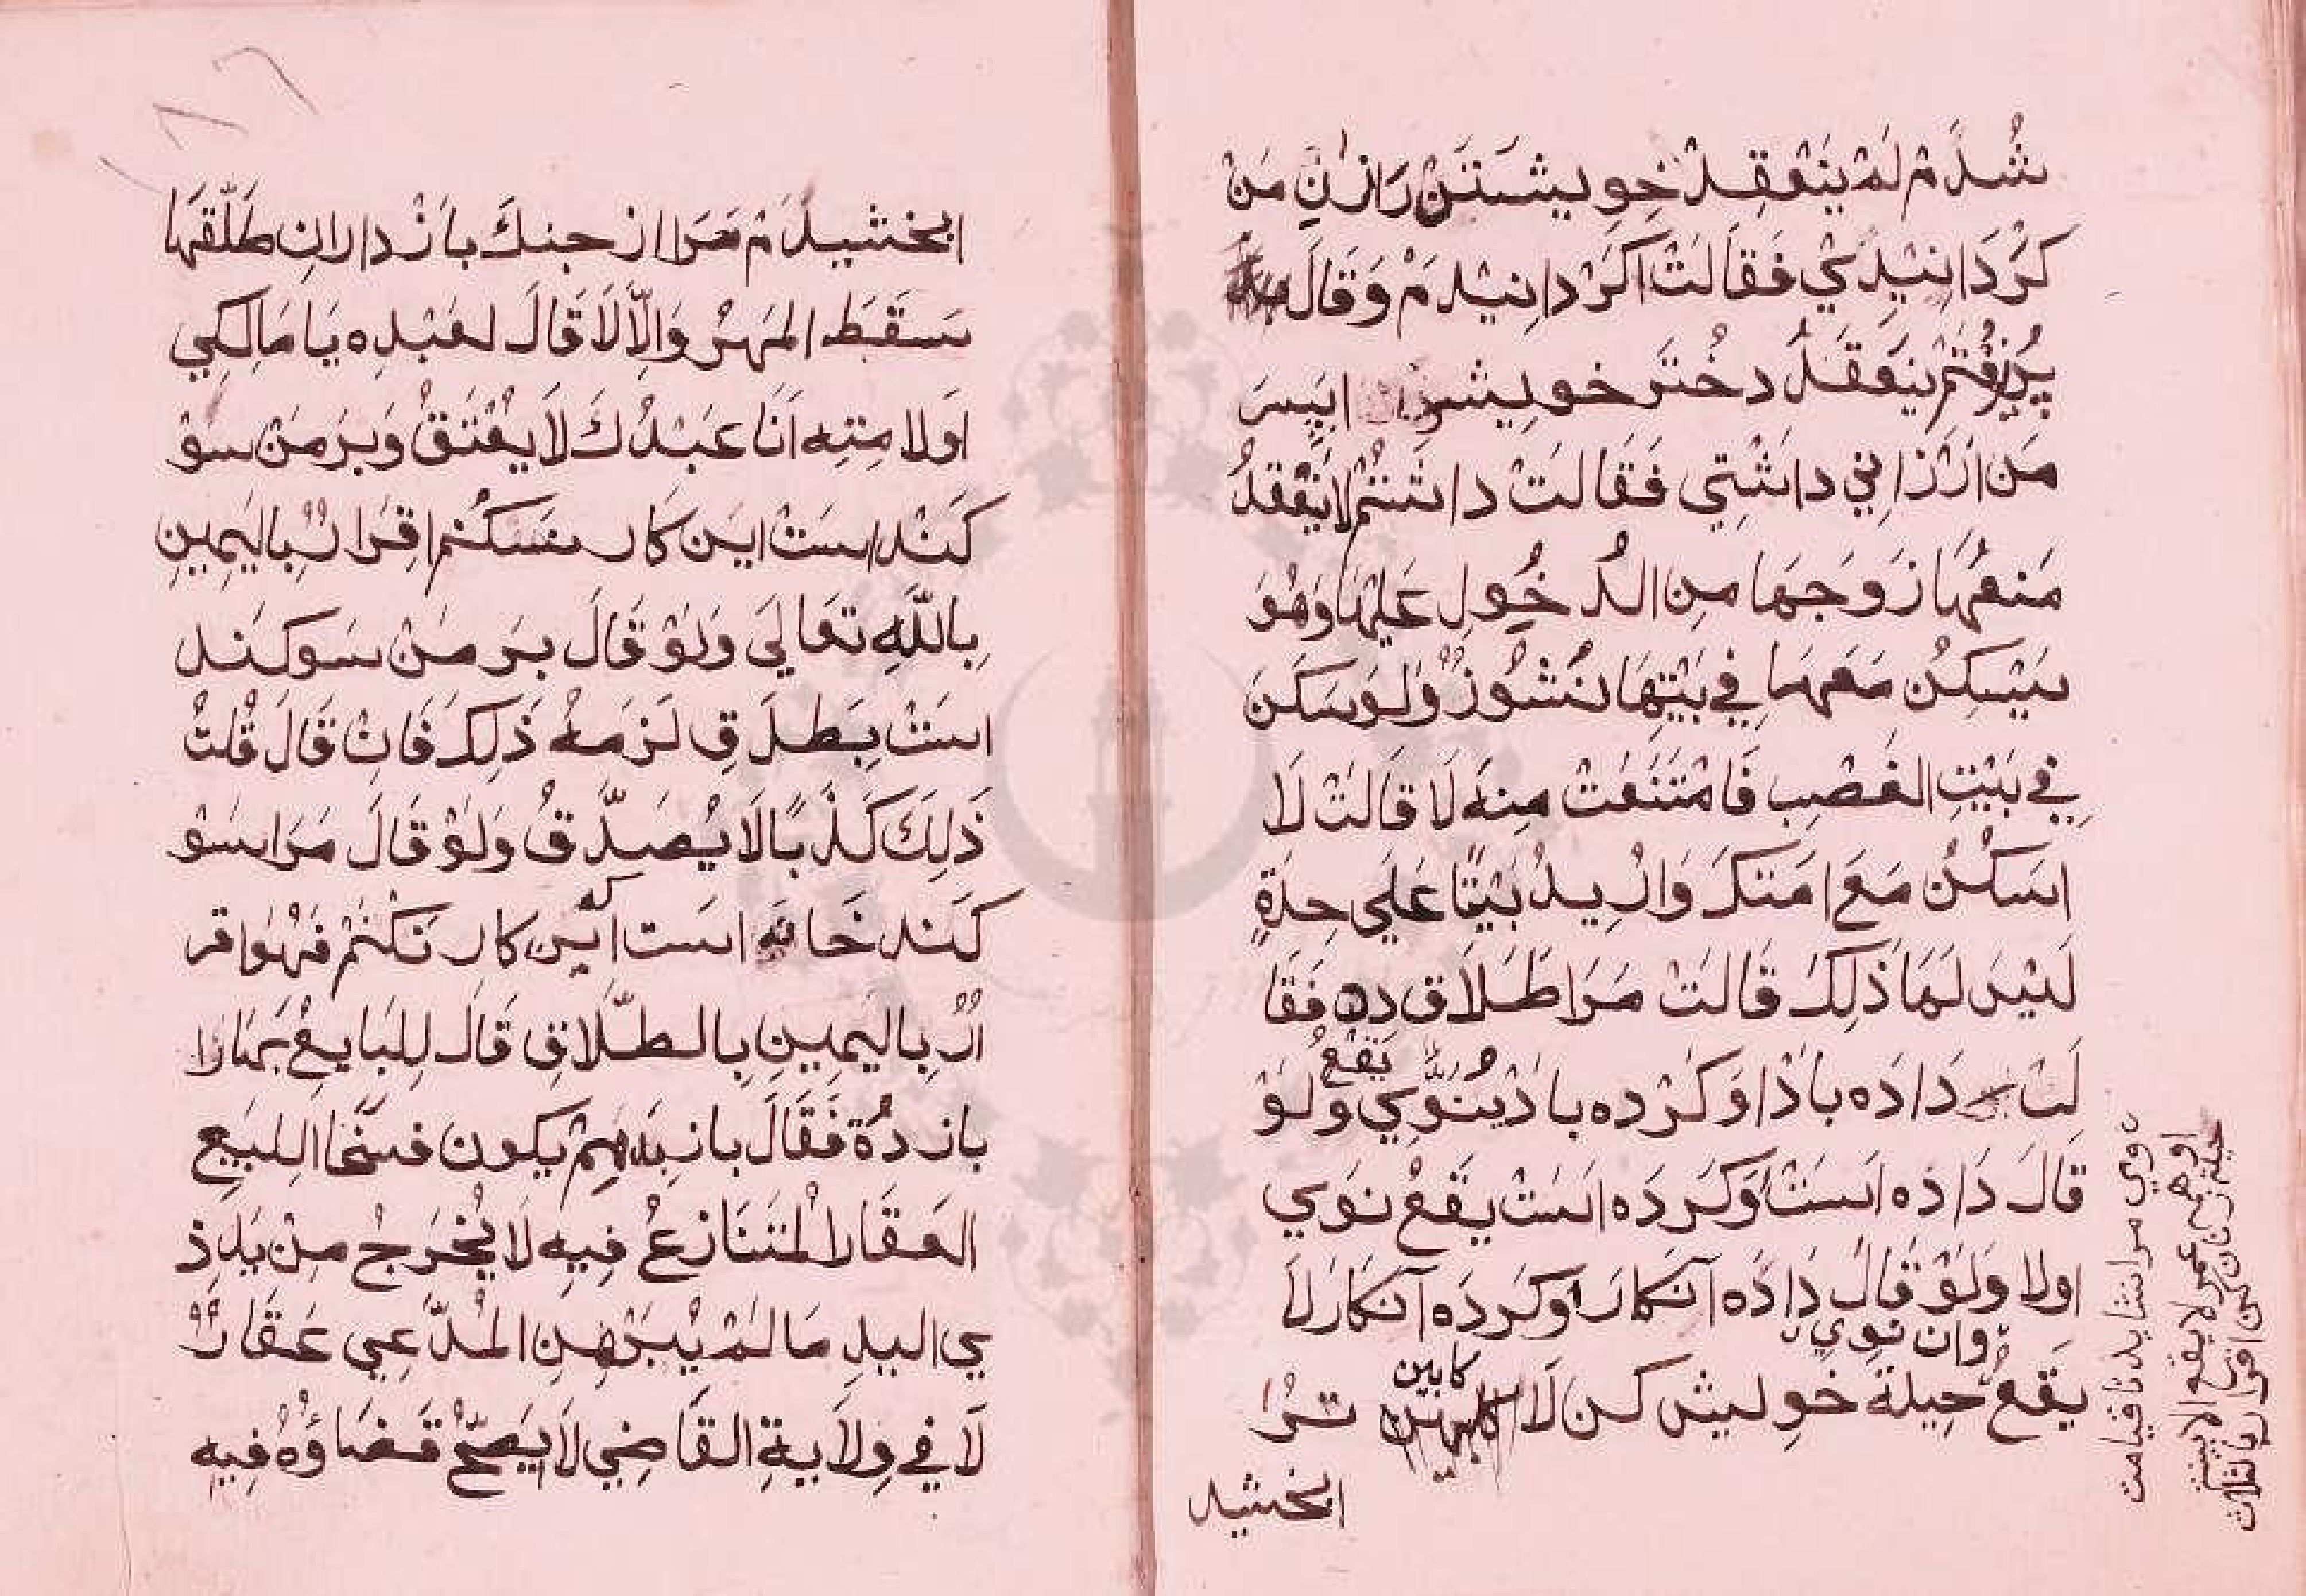 شُدَمْ لَمْ يَنْعَقِدْ خِويشتَنْ رَازنِ مَنْ
كَرْدَانِيْدِيْ فَقَالَتْ اكَرْدَانِيْدَمْ وَقَالَ
پَزِيرُفْتَمْ يَنعَقدُ دخْتَر خويش اپسَر
مَن ارْزَانِي دَاشْتِي فَقَالَتْ دَاشْتَمْ لَا يَنْعَقدُ
مَنعُهَا زَوجَهَا مِنَ الدُّخُولِ عَلَيْهَا وَهُوَ
يَسْكنُ مَعَهَا فِي بَيْتِهَا نُشُوزٌ وَلَوْ سَكَنَ
فِي بَيْتِ الغَصْبِ فَامْتَنَعَتْ مِنهُ لَا قَالَتْ لَا
اسكُنُ مَعَ امَتكَ وَارِيدُ بَيْتًا عَلَي حِدَةٍ
لَيْسَ لَهَا ذَلِكَ قَالَتْ مَرَا طَلَاق دِه فَقَا
لَتْ دَادَه بَادْ اوَكَرْده بَادْ يُنَوِّي وَلَوْ
يَقَعُ
قَالَ دَادَه اسَتْ اوَكَردَه اسَتْ يَقَعُ نَوَي
اولا وَلَوْ قَالَ دَادَه آنكَار اوكَردَه آنكَار لَا
وان نوي
يَقَعُ حِيلَة خِويش كن لَا ترا
كابين
ابخشيد
نوي مرا نشايد تا قيامت
او همه عمر لا يقع الا بنيت
حيلة زنان كن اقرار بالثلاث
ابخشيدَمْ مَرَا از جنكَ بَازْدارانِ طَلَّقَهَا
سَقَطَ المَهرُ وَإِلَّا لَا قَالَ لعَبْدِه يَا مَالِكِي
اولا مَتِهِ اَنَا عَبْدُكَ لَا يعْتَقُ وَبَرمَنْ سَوْ
كَنْد اسَتْ اين كَار نسَكُنم اقِرَارٌ بِاليَمِينِ
بِاللَّهِ تَعَالَي وَلَوْ قَالَ بَر مَنْ سَوكَند
اسَتْ بِطَلَاقِ لَزمَهُ ذَلِكَ فَانْ قَالَ قُلتُ
ذَلِكَ كَذِبًا لَا يُصَدَّقُ وَلَوْ قَالَ مَرَا سَوْ
كَنْد خَانه اسَت كه اين كَار نَكُنَم فَهُوَ اقر
ارٌ بِاليَمِينِ بِالطَّلَاقِ قَالَ لِلبَايِعِ بَهَارَا
باز دَه فَقَالَ باز بدهم يَكون فسَخًا للبَيعِ
العَقَار المُتَنَازعُ فِيهِ لَا يُخرَجُ مِنْ يَدِ ذِ
ي اليدِ مَا لمْ يُبَرْهِنِ المُدَّعِي عَقَارٌ
لَا فِي وِلَايةِ القَاضِي لَا يَصِحُّ قَضَاؤُهُ فِيهِ